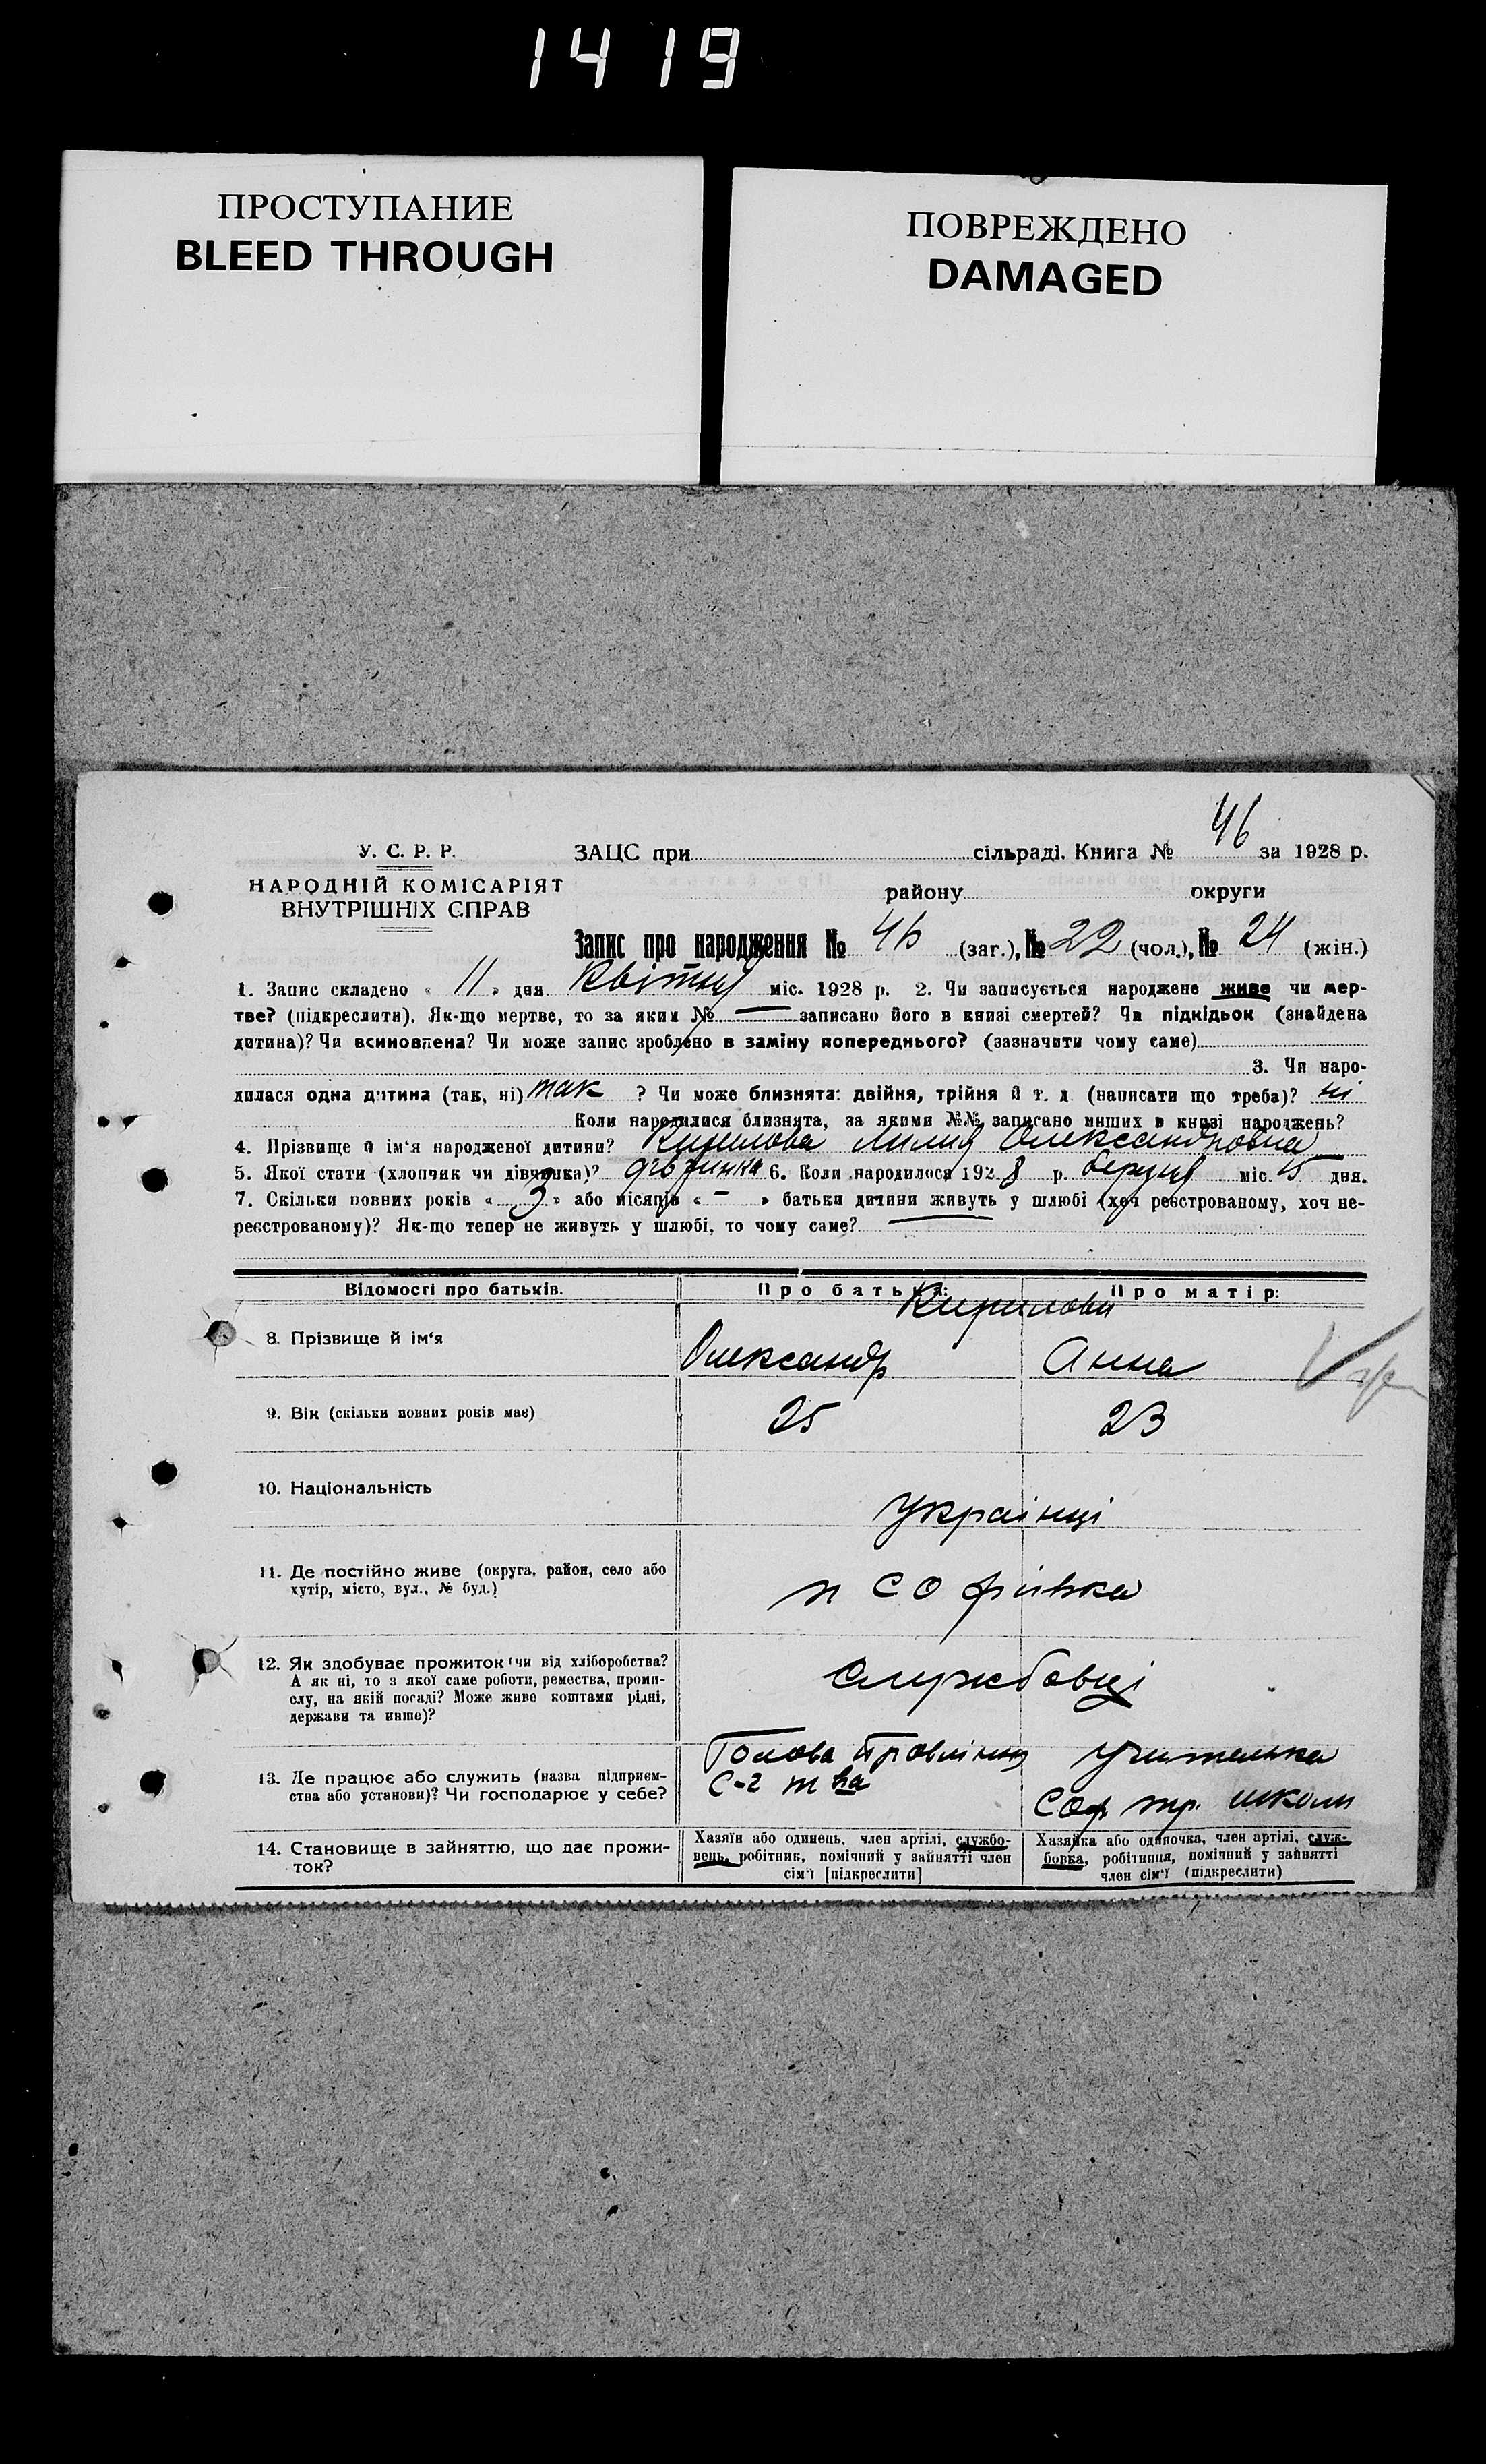 1419
ПРОСТУПАНИЕ
BLEED THROUGH
ПОВРЕЖДЕНО
DAMAGED
У. С. Р. Р.
НАРОДНІЙ КОМІСАРІЯТ
ВНУТРІШНІХ СПРАВ
ЗАЦС при сільраді. Книга № 46 за 1928 р.
району округи
Запис про народження № 46 (заг.), № 22 (чол.), № 24 (жін.)
1. Запис складено « 11 » дня Квітня міс. 1928 р. 2. Чи записується народжене живе чи мер-
тве? (підкреслити). Як-що мертве, то за яким № — записано його в книзі смертей? Чи підкідьок (знайдена
дитина)? Чи всиновлена? Чи може запис зроблено в заміну попереднього? (зазначити чому саме)
3. Чи наро-
дилася одна дитина (так, ні) так ? Чи може близнята: двійня, трійня й т. д. (написати що треба)? ні
Коли народилися близнята, за якими №№ записано инших в книзі народжень?
4. Прізвище й ім'я народженої дитини? Кирилова Лилия Олександровна
5. Якої стати (хлопчик чи дівчинка)? дівчинка 6. Коли народилося 1928 р. березня міс. 15 дня.
7. Скільки повних років « 3 » або місяців « – » батьки дитини живуть у шлюбі (хоч реєстрованому, хоч не-
реєстрованому)? Як-що тепер не живуть у шлюбі, то чому саме?
Відомості про батьків. Про батька: Про матір:
Кирилови
8. Прізвище й ім'я Олександр Анна
9. Вік (скільки повних років має) 25 23
10. Національність українці
11. Де постійно живе (округа, район, село або
хутір, місто, вул., № буд.) п Софіївка
12. Як здобуває прожиток (чи від хліборобства?
А як ні, то з якої саме роботи, ремества, проми-
слу, на якій посаді? Може живе коштами рідні,
держави та инше)?
службовці
13. Де працює або служить (назва підприєм-
ства або установи)? Чи господарює у себе?
Голова Правління
С-г т ва
учителька
Соф тр. школи
14. Становище в зайняттю, що дає прожи-
ток?
Хазяїн або одинець, член артілі, службо-
вець, робітник, помічний у зайнятті член
сім'ї [підкреслити]
Хазяйка або одиночка, член артілі, служ-
бовка, робітниця, помічний у зайнятті
член сім'ї (підкреслити)